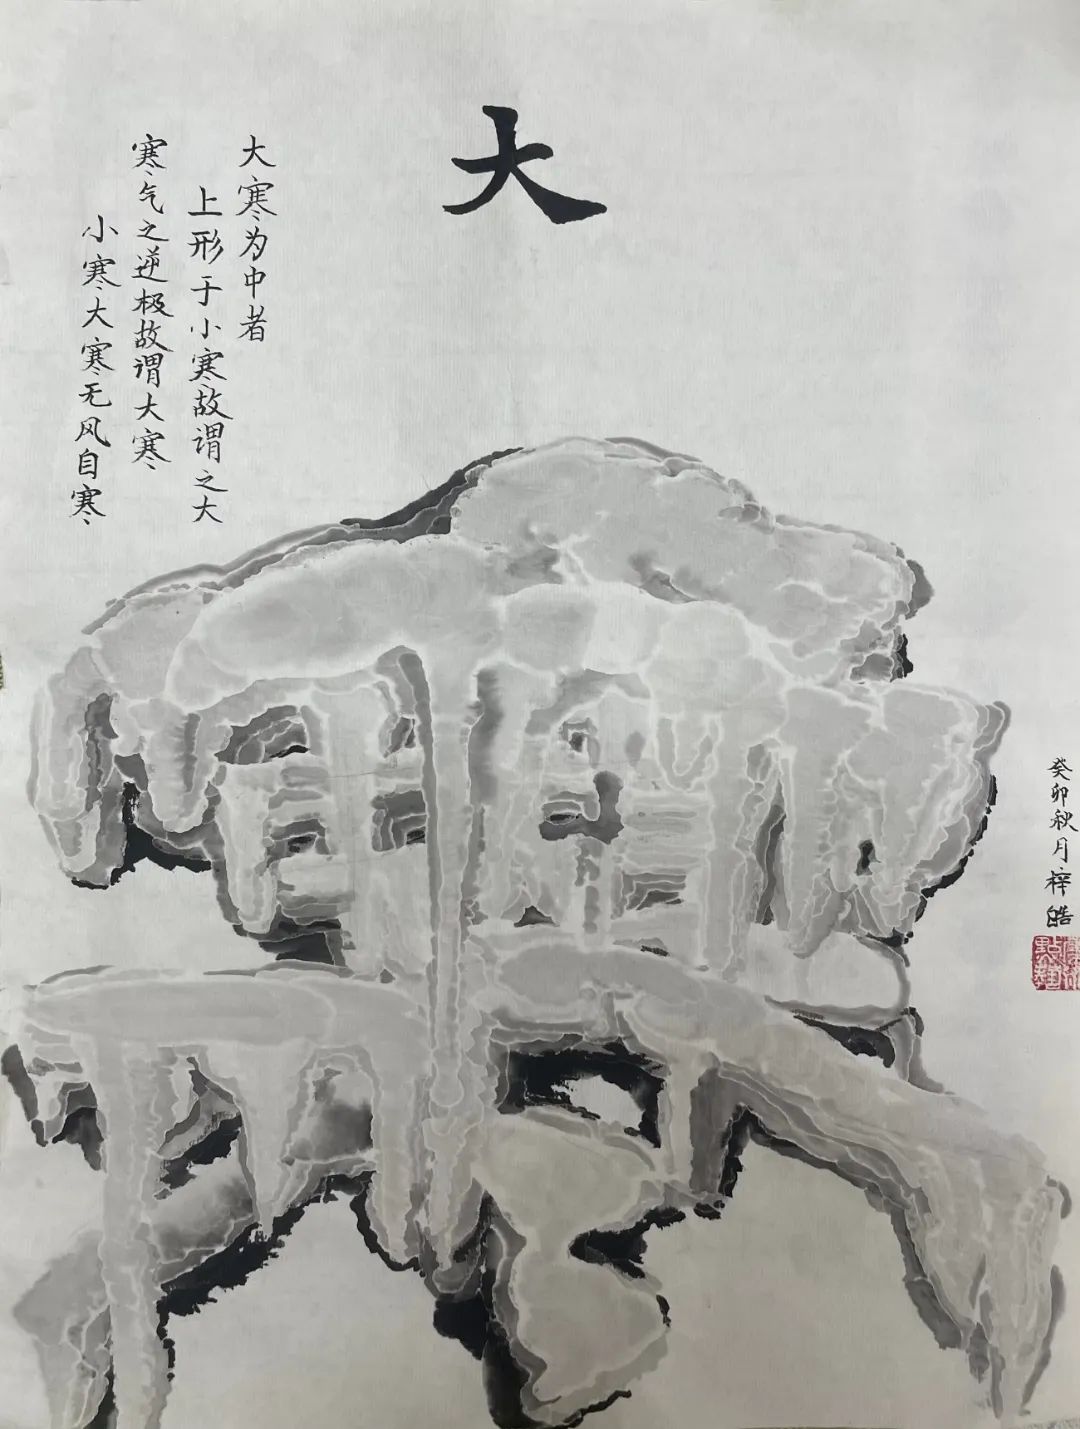 大
大寒为中者
上形于小寒故谓之大
寒气之逆极故谓大寒
小寒大寒无风自寒
癸卯秋月梓皓